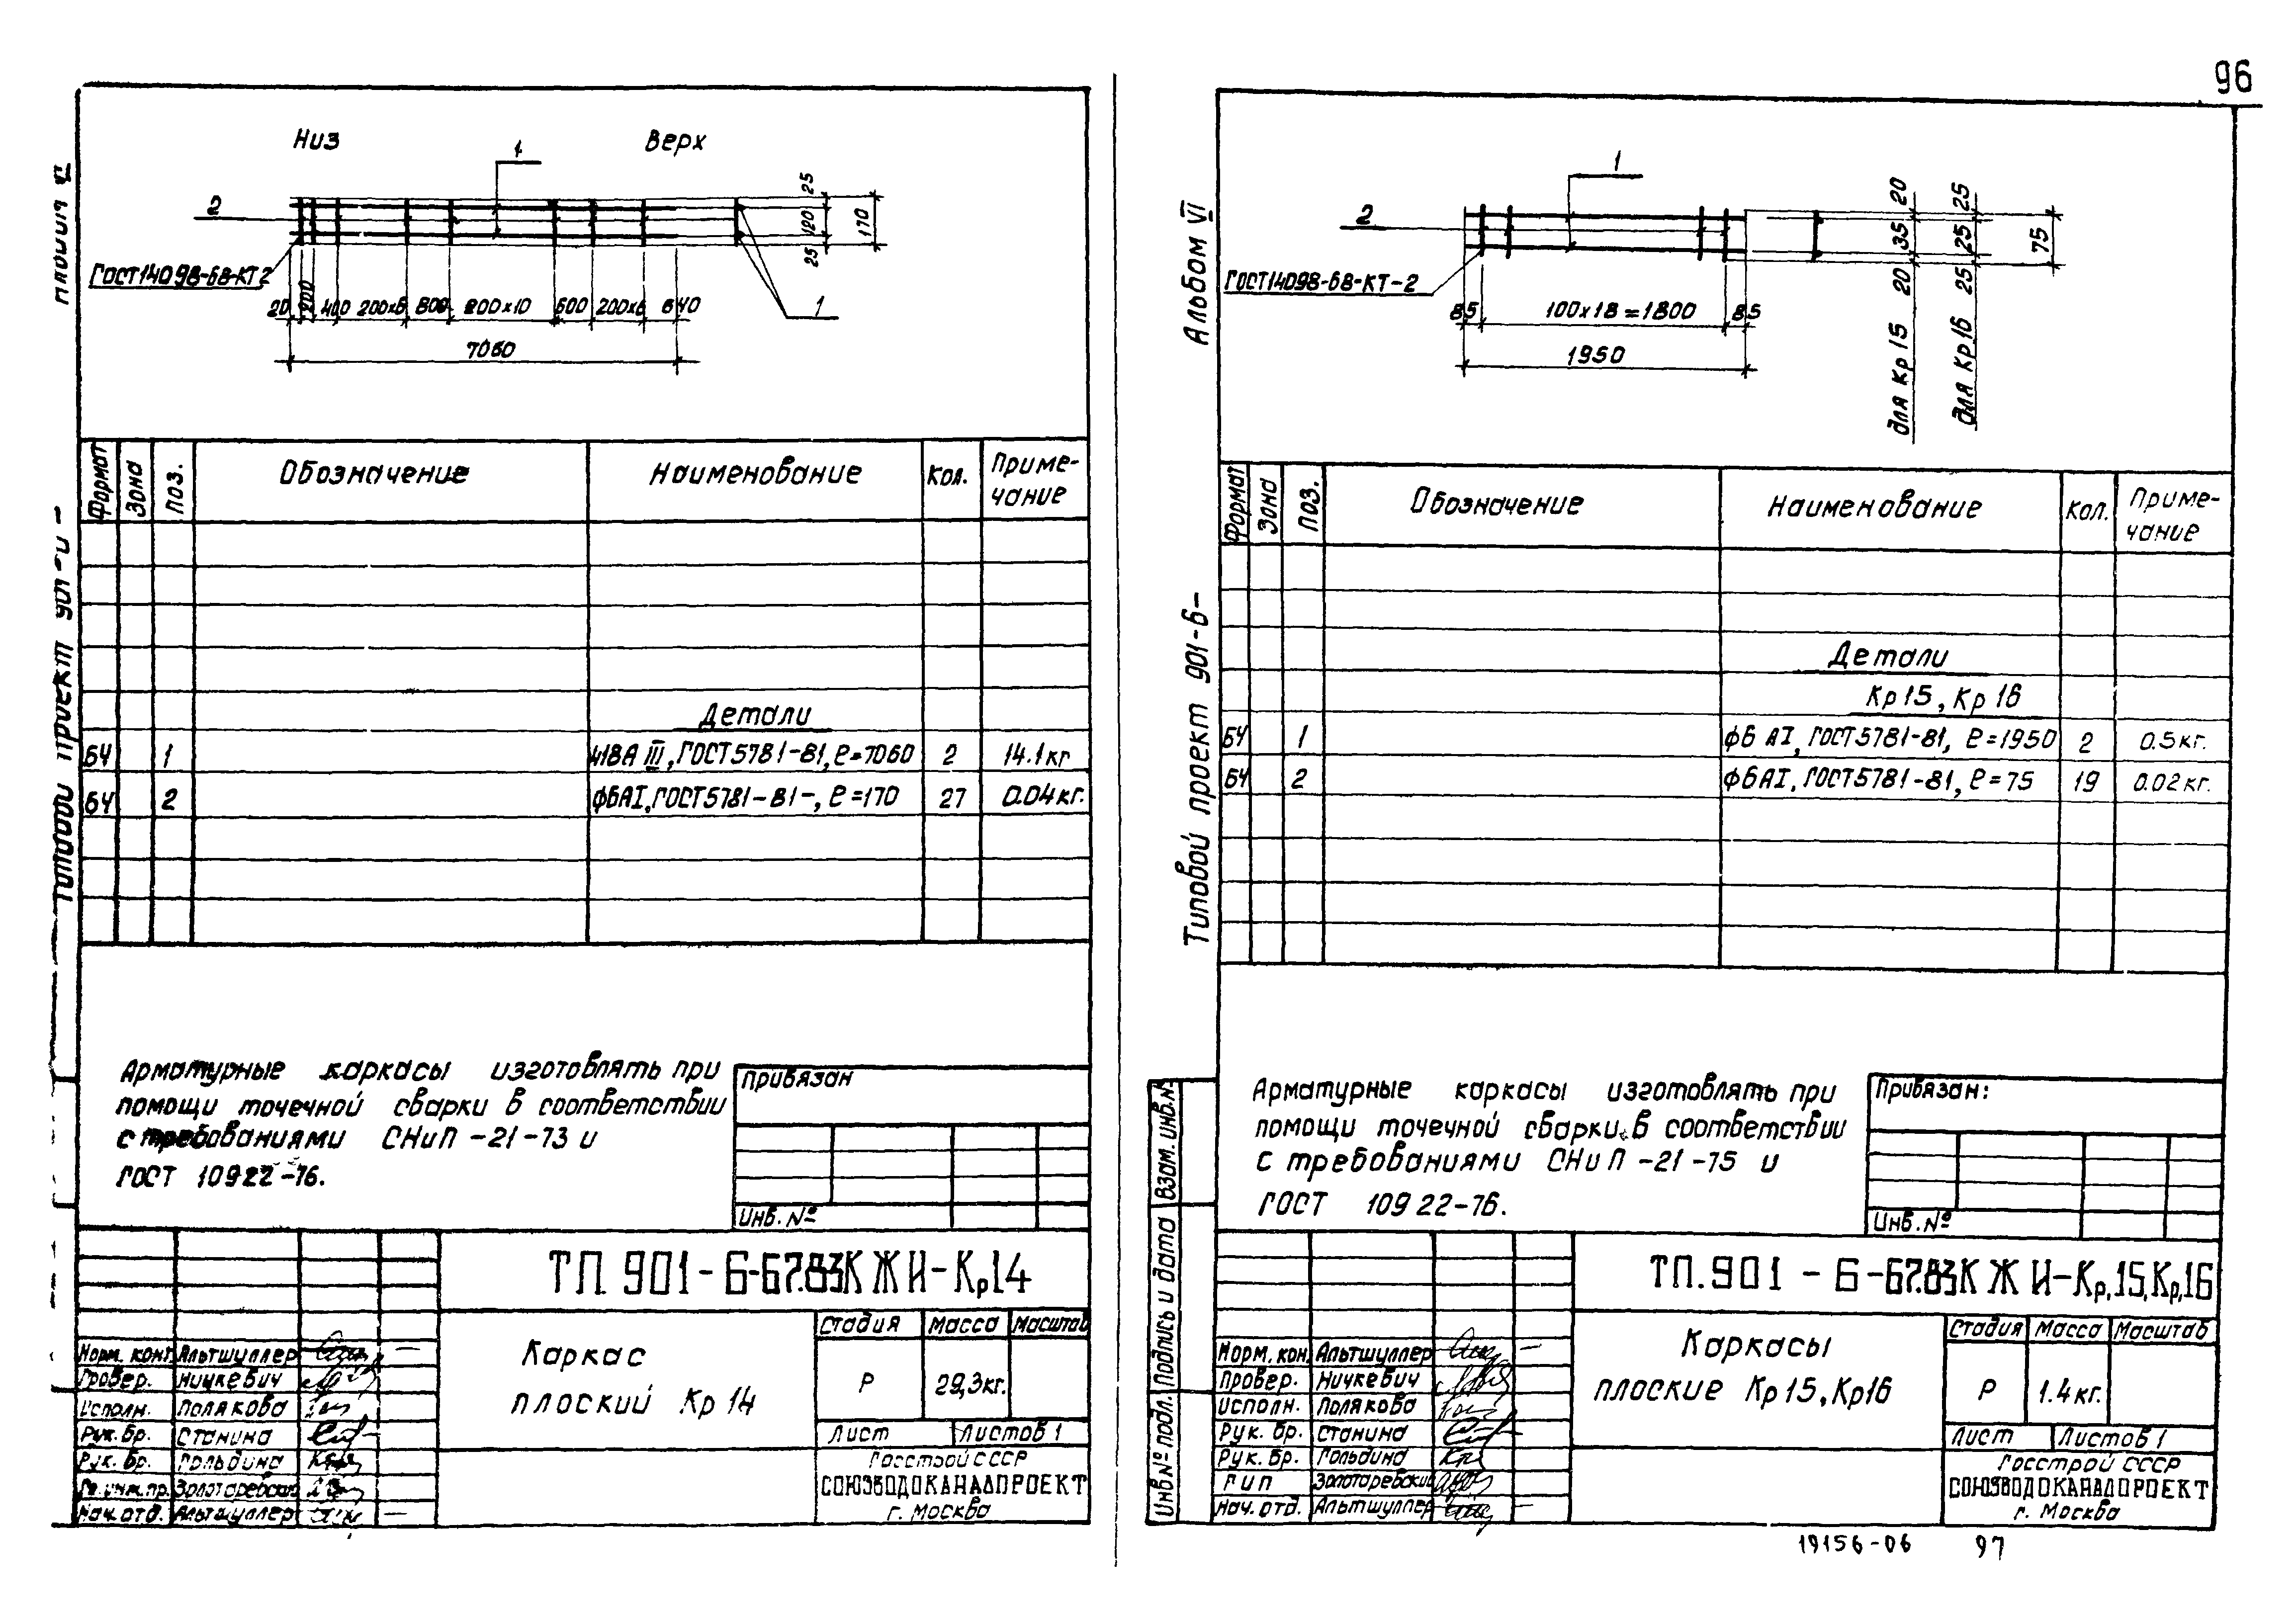 96
Низ
Верх
1
2
ГОСТ14098-68-КТ2
20 200 400 200х6 800 200х10 600 200х6 640
7060
25 120 25
170
1
Формат Зона Поз. Обозначение Наименование Кол. Приме-
чание
Детали
БЧ 1 Ф18А III, ГОСТ5781-81, ℓ=7060 2 14.1кг
БЧ 2 Ф6АI, ГОСТ5781-81-, ℓ=170 27 0.04кг.
Арматурные каркасы изготовлять при
помощи точечной сварки в соответствии
с требованиями СНиП-21-73 и
ГОСТ 10922-76.
Привязан
Инв. №
ТП 901-6-67.83КЖИ-Кр14
Каркас
плоский Кр 14
Стадия Масса Масштаб
Р 29,3кг.
Лист Листов 1
Госстрой СССР
СОЮЗВОДОКАНАЛПРОЕКТ
г. Москва
Норм. конт. Альтшуллер
Провер. Ничкевич
Исполн. Полякова
Рук. бр. Станина
Рук. бр. Гольдина
Гл. инж. пр. Золотаревский
Нач. отд. Альтшуллер
Типовой проект 901-6-
Альбом VI
1
2
ГОСТ14098-68-КТ-2
85 100х18=1800 85
1950
20 35 20 для Кр 15
25 25 25 для Кр 16
75
Альбом VI
Типовой проект 901-6-
Формат Зона Поз. Обозначение Наименование Кол. Приме-
чание
Детали
Кр 15, Кр 16
БЧ 1 Ф6 АI, ГОСТ5781-81, ℓ=1950 2 0.5кг.
БЧ 2 Ф6АI, ГОСТ5781-81, ℓ=75 19 0.02кг.
Арматурные каркасы изготовлять при
помощи точечной сварки в соответствии
с требованиями СНиП-21-75 и
ГОСТ 10922-76.
Привязан:
Инв. №
Взам. инв. №
Подпись и дата
Инв № подл.
ТП.901-6-67.83КЖИ-Кр,15,Кр,16
Каркасы
плоские Кр15, Кр16
Стадия Масса Масштаб
Р 1.4кг.
Лист Листов 1
Госстрой СССР
СОЮЗВОДОКАНАЛПРОЕКТ
г. Москва
Норм. кон. Альтшуллер
Провер. Ничкевич
Исполн. Полякова
Рук. бр. Станина
Рук. бр. Гольдина
ГИП Золотаревский
Нач. отд. Альтшуллер
19156-06 97